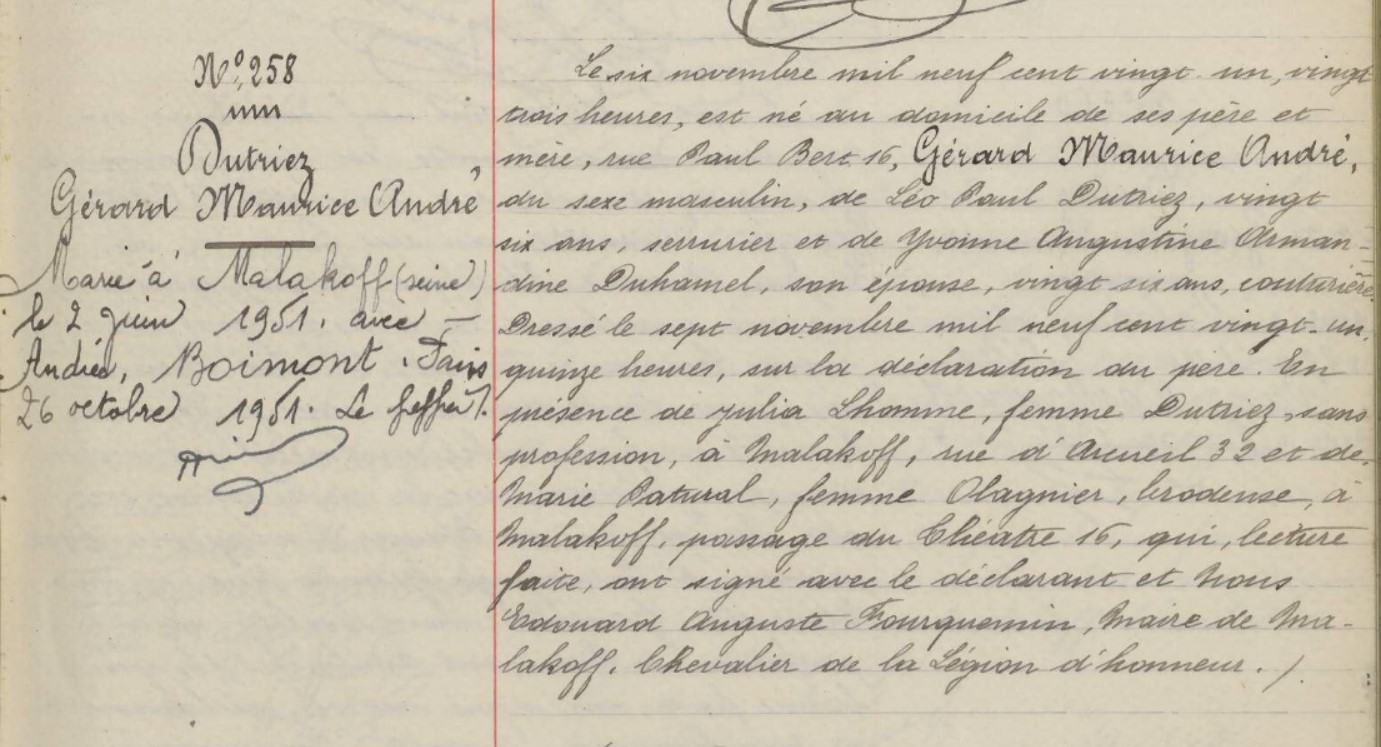 N° 258
Dutriez
Gérard Maurice André
Marié à Malakoff (seine)
le 2 juin 1951. avec —
Andrée, Boimont. Fait
26 octobre 1951. Le Greffier.
Le six novembre mil neuf cent vingt-un, vingt
trois heures, est né au domicile de ses père et
mère, rue Paul Bert 16, Gérard Maurice André,
du sexe masculin, de Léo Paul Dutriez, vingt
six ans, serrurier et de Yvonne Augustine Arman-
dine Duhamel, son épouse, vingt six ans, couturière.
Dressé le sept novembre mil neuf cent vingt-un,
quinze heures, sur la déclaration du père. En
présence de Julia Lhomme, femme Dutriez, sans
profession, à Malakoff, rue d'Arcueil 32 et de
Marie Patural, femme Olagnier, brodeuse, à
Malakoff, passage du Théâtre 16, qui, lecture
faite, ont signé avec le déclarant et Nous
Edouard Auguste Fourquemin, Maire de Ma-
lakoff. Chevalier de la Légion d'honneur. /.